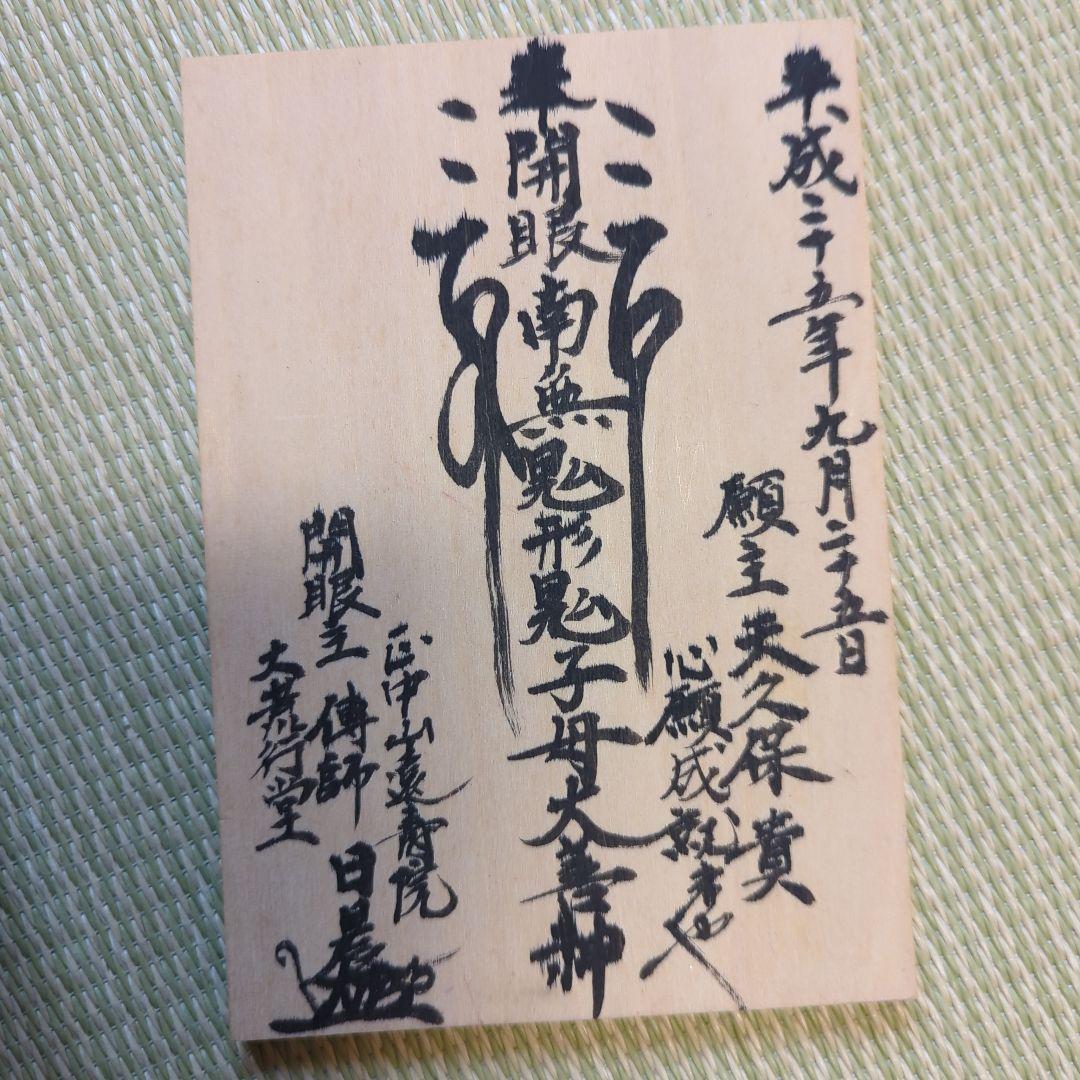 平成二十五年九月二十五日
願主天久保貴
心願成就
奉開眼南無鬼形鬼子母大善神
正中山遠壽院
開眼主傳師日
大荒行堂